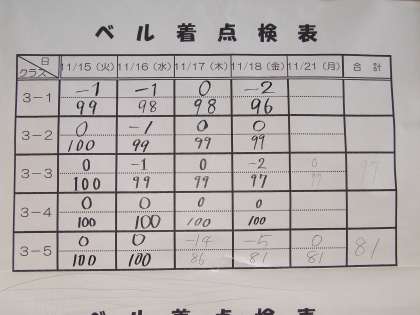 ベル着点検表
日 クラス 11/15（火） 11/16（水） 11/17（木） 11/18（金） 11/21（月） 合計
3-1 -1 -1 0 -2
99 98 98 96
3-2 0 -1 0 0
100 99 99 99
3-3 0 -1 0 -2 0
100 99 99 97 97 97
3-4 0 0 0 0
100 100 100 100
3-5 0 0 -14 -5 0
100 100 86 81 81 81
ベル着点検表